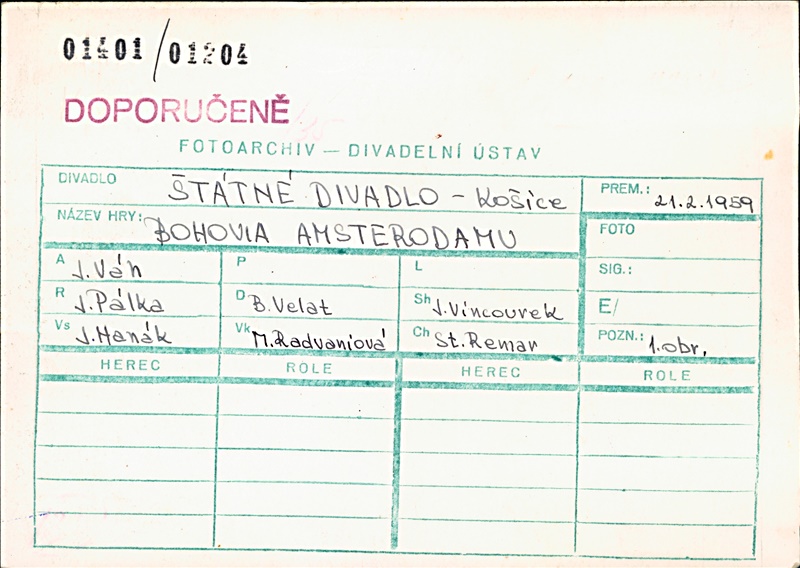 01401/01204
DOPORUČENĚ
FOTOARCHIV — DIVADELNÍ ÚSTAV
DIVADLO ŠTÁTNÉ DIVADLO - Košice PREM.: 21.2.1959
NÁZEV HRY: BOHOVIA AMSTERODAMU FOTO
A J. Ván P L SIG.:
R J. Pálka D B. Velat Sh J. Vincourek E/
Vs J. Hanák Vk M. Radvaniová Ch St. Remar POZN.: 1. obr.
HEREC ROLE HEREC ROLE